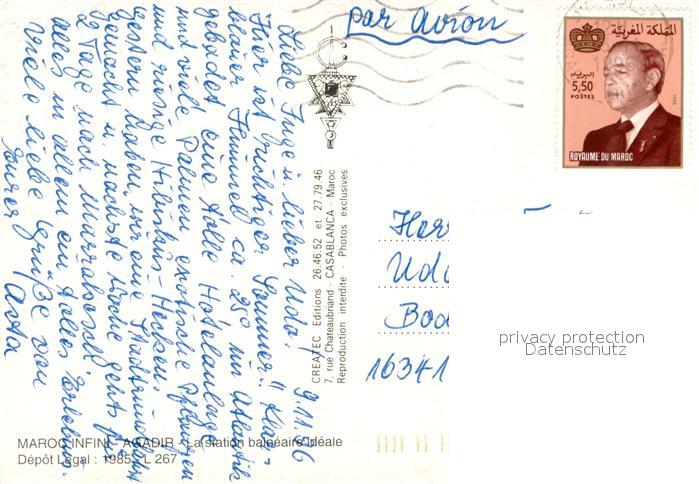 par avion
المملكة المغربية
البريد
5,50
POSTES
ROYAUME DU MAROC
9.11.86
Liebe Inge u. lieber Udo!
Hier ist richtiger Sommer!! Klar
blauer Himmel ca. 25° im Atlantik
gebadet eine tolle Hotelanlage
mit viele Palmen exotische Pflanzen
und riesige Hibiskus-Hecken.
gestern haben wir eine Stadtrundfahrt
gemacht u. nächste Woche geht's für
2 Tage nach Marrakesch!
alles in allem ein tolles Erlebnis.
Viele liebe Grüße von
Eurer
CREATEC Editions 26.46.52 et 27.79.46
7, rue Chateaubriand - CASABLANCA - Maroc
Reproduction interdite - Photos exclusives
Herr
Udo
Bod
16341
privacy protection
Datenschutz
MAROC INFINI - AGADIR - La station balnéaire idéale
Dépôt Légal : 1985 - L 267